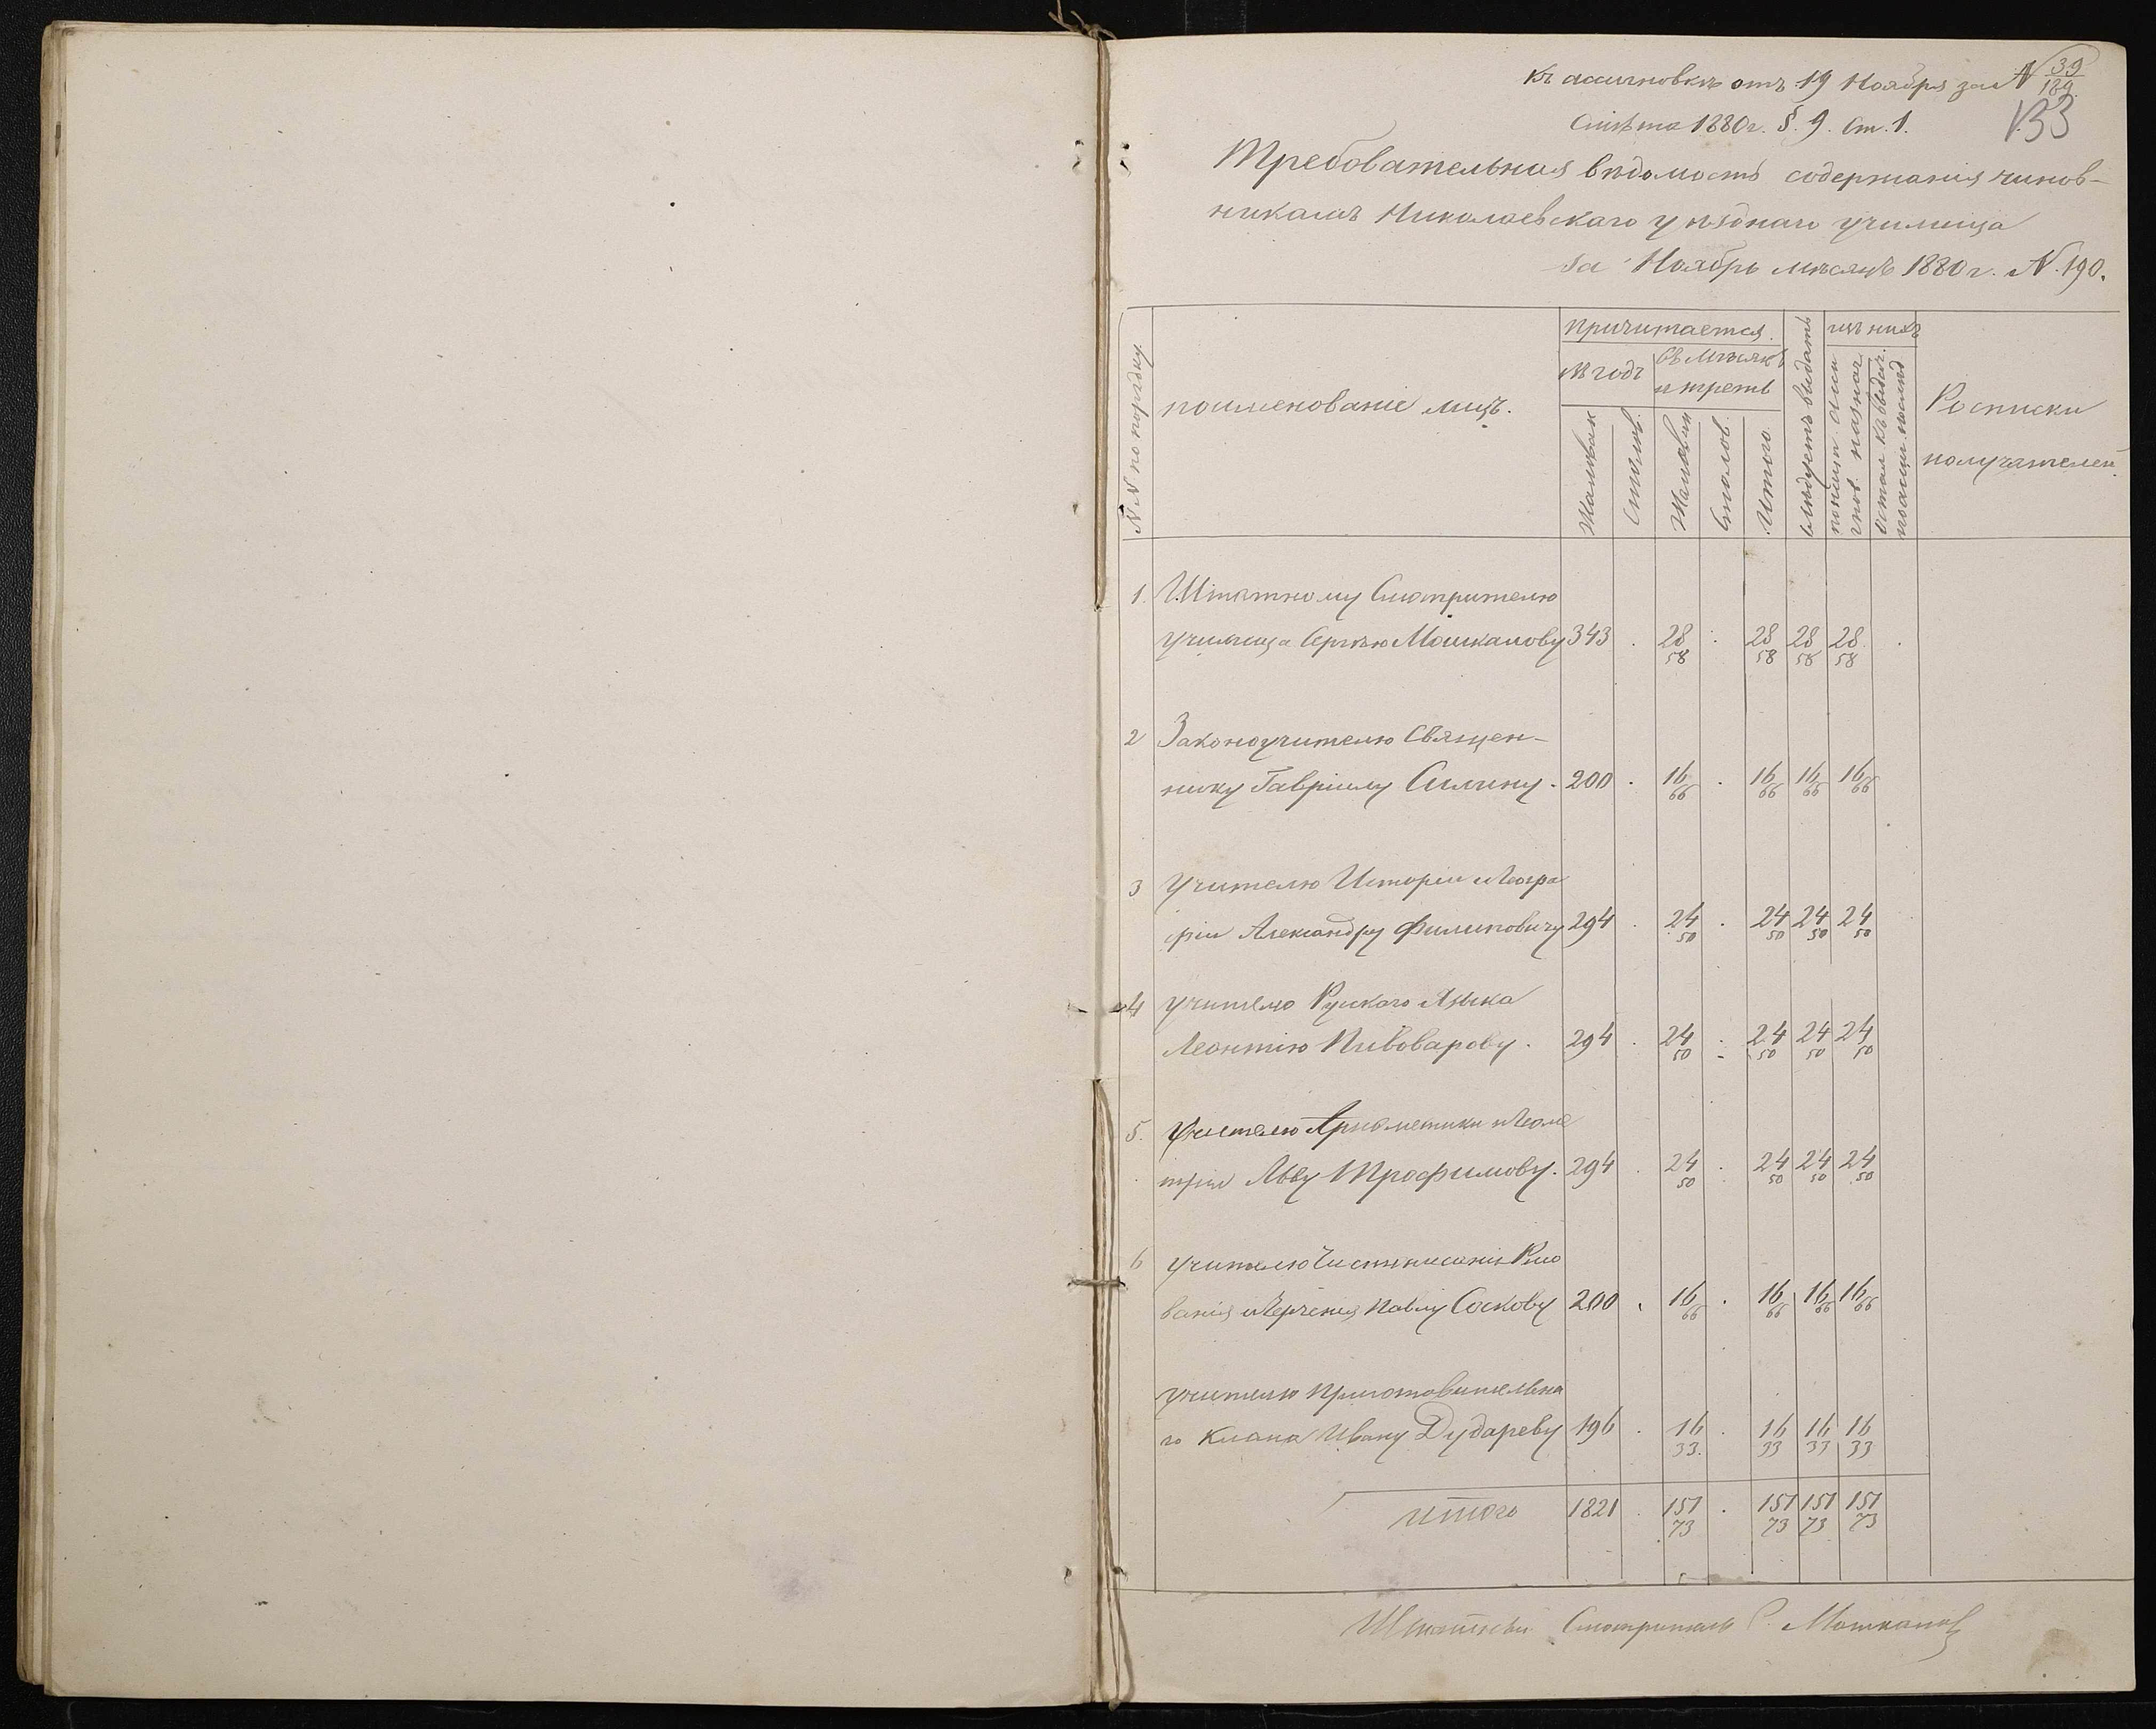 Къ ассигновкѣ отъ 19 Ноября за № 39/189.
Смѣта 1880 г. §. 9. Ст. 1.
133
Требовательная вѣдомость содержанія чинов-
никамъ Николаевскаго уѣзднаго училища
за Ноябрь мѣсяцъ 1880 г. №. 190.
№№ по порядку.
поименованіе лицъ.
причитается.
въ годъ
въ мѣсяцъ
и треть
Жалован
Столов.
Жалован
Столов.
Итого.
слѣдуетъ выдать
изъ нихъ
Росписки
получателей.
1. Штатному Смотрителю
училища Сергѣю Мошканову 343 . 28 58 . 28 58 28 58 28 58 .
2 Законоучителю Священ-
нику Гавріилу Силину . 200 . 16 66 . 16 66 16 66 16 66
3 Учителю Исторіи и Геогра
фіи Александру Филиповичу 294 . 24 50 . 24 50 24 50 24 50
4 учителю Рускаго Языка
Леонтію Пивоварову . 294 . 24 50 . 24 50 24 50 24 50
5. Учителю Ариѳметики и Геоме
тріи Льву Трофимову . 294 . 24 50 . 24 50 24 50 24 50
6 учителю Чистописанія Рисо
ванія и Черченія Павлу Соскову 200 . 16 66 . 16 66 16 66 16 66
учителю приготовительна
го класа Ивану Дудареву 196 . 16 33. . 16 33 16 33 16 33
итого 1821 . 151 73 . 151 73 151 73 151 73
Штатный Смотритель С. Мошкановъ